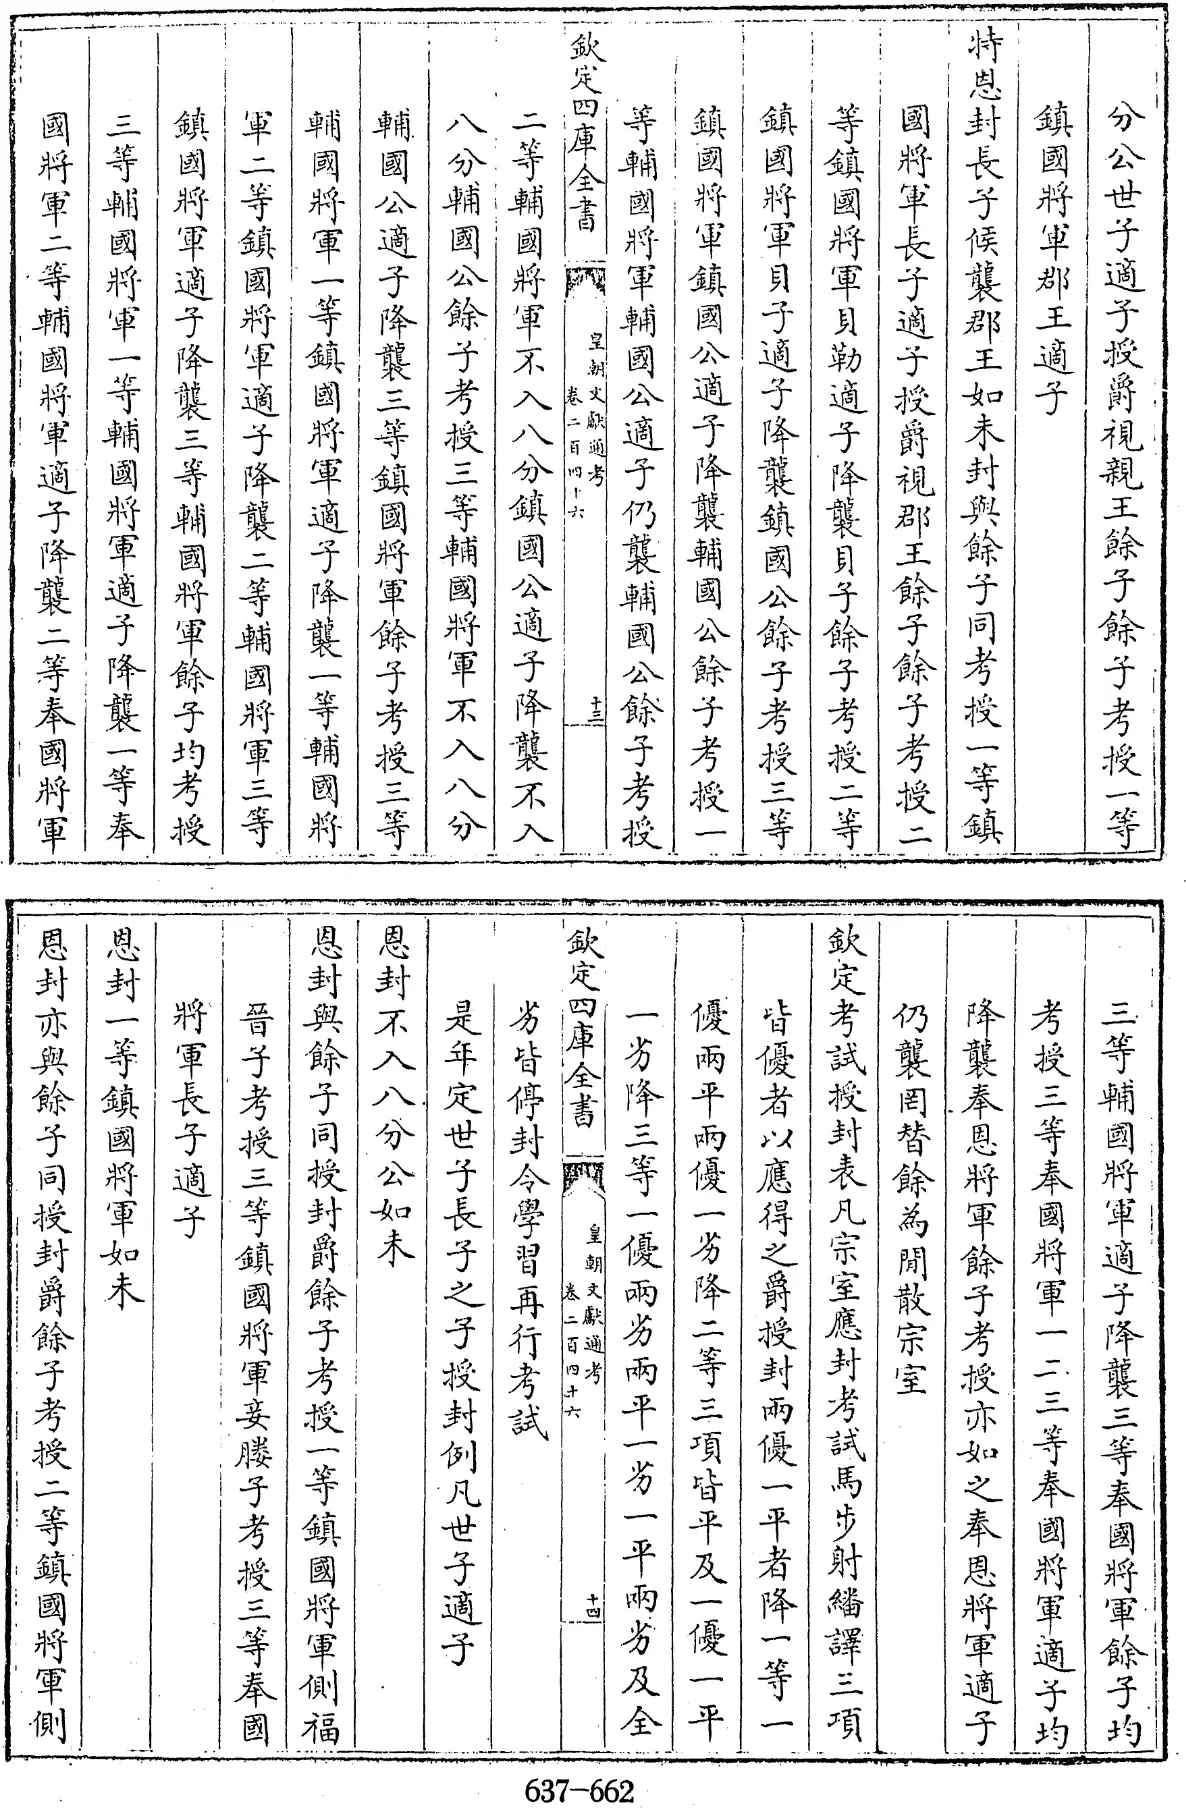 分公世子適子授爵視親王餘子餘子考授一等
鎮國將軍郡王適子
特恩封長子候襲郡王如未封與餘子同考授一等鎮
國將軍長子適子授爵視郡王餘子餘子考授二
等鎮國將軍貝勒適子降襲貝子餘子考授二等
鎮國將軍貝子適子降襲鎮國公餘子考授三等
鎮國將軍鎮國公適子降襲輔國公餘子考授一
等輔國將軍輔國公適子仍襲輔國公餘子考授
欽定四庫全書
皇朝文獻通考
卷二百四十六
十三
二等輔國將軍不入八分鎮國公適子降襲不入
八分輔國公餘子考授三等輔國將軍不入八分
輔國公適子降襲三等鎮國將軍餘子考授三等
輔國將軍一等鎮國將軍適子降襲一等輔國將
軍二等鎮國將軍適子降襲二等輔國將軍三等
鎮國將軍適子降襲三等輔國將軍餘子均考授
三等輔國將軍一等輔國將軍適子降襲一等奉
國將軍二等輔國將軍適子降襲二等奉國將軍
三等輔國將軍適子降襲三等奉國將軍餘子均
考授三等奉國將軍一二三等奉國將軍適子均
降襲奉恩將軍餘子考授亦如之奉恩將軍適子
仍襲罔替餘為閒散宗室
欽定考試授封表凡宗室應封考試馬步射繙譯三項
皆優者以應得之爵授封兩優一平者降一等一
優兩平兩優一劣降二等三項皆平及一優一平
一劣降三等一優兩劣兩平一劣一平兩劣及全
欽定四庫全書
皇朝文獻通考
卷二百四十六
十四
劣皆停封令學習再行考試
是年定世子長子之子授封例凡世子適子
恩封不入八分公如未
恩封與餘子同授封爵餘子考授一等鎮國將軍側福
晉子考授三等鎮國將軍妾媵子考授三等奉國
將軍長子適子
恩封一等鎮國將軍如未
恩封亦與餘子同授封爵餘子考授二等鎮國將軍側
637-662